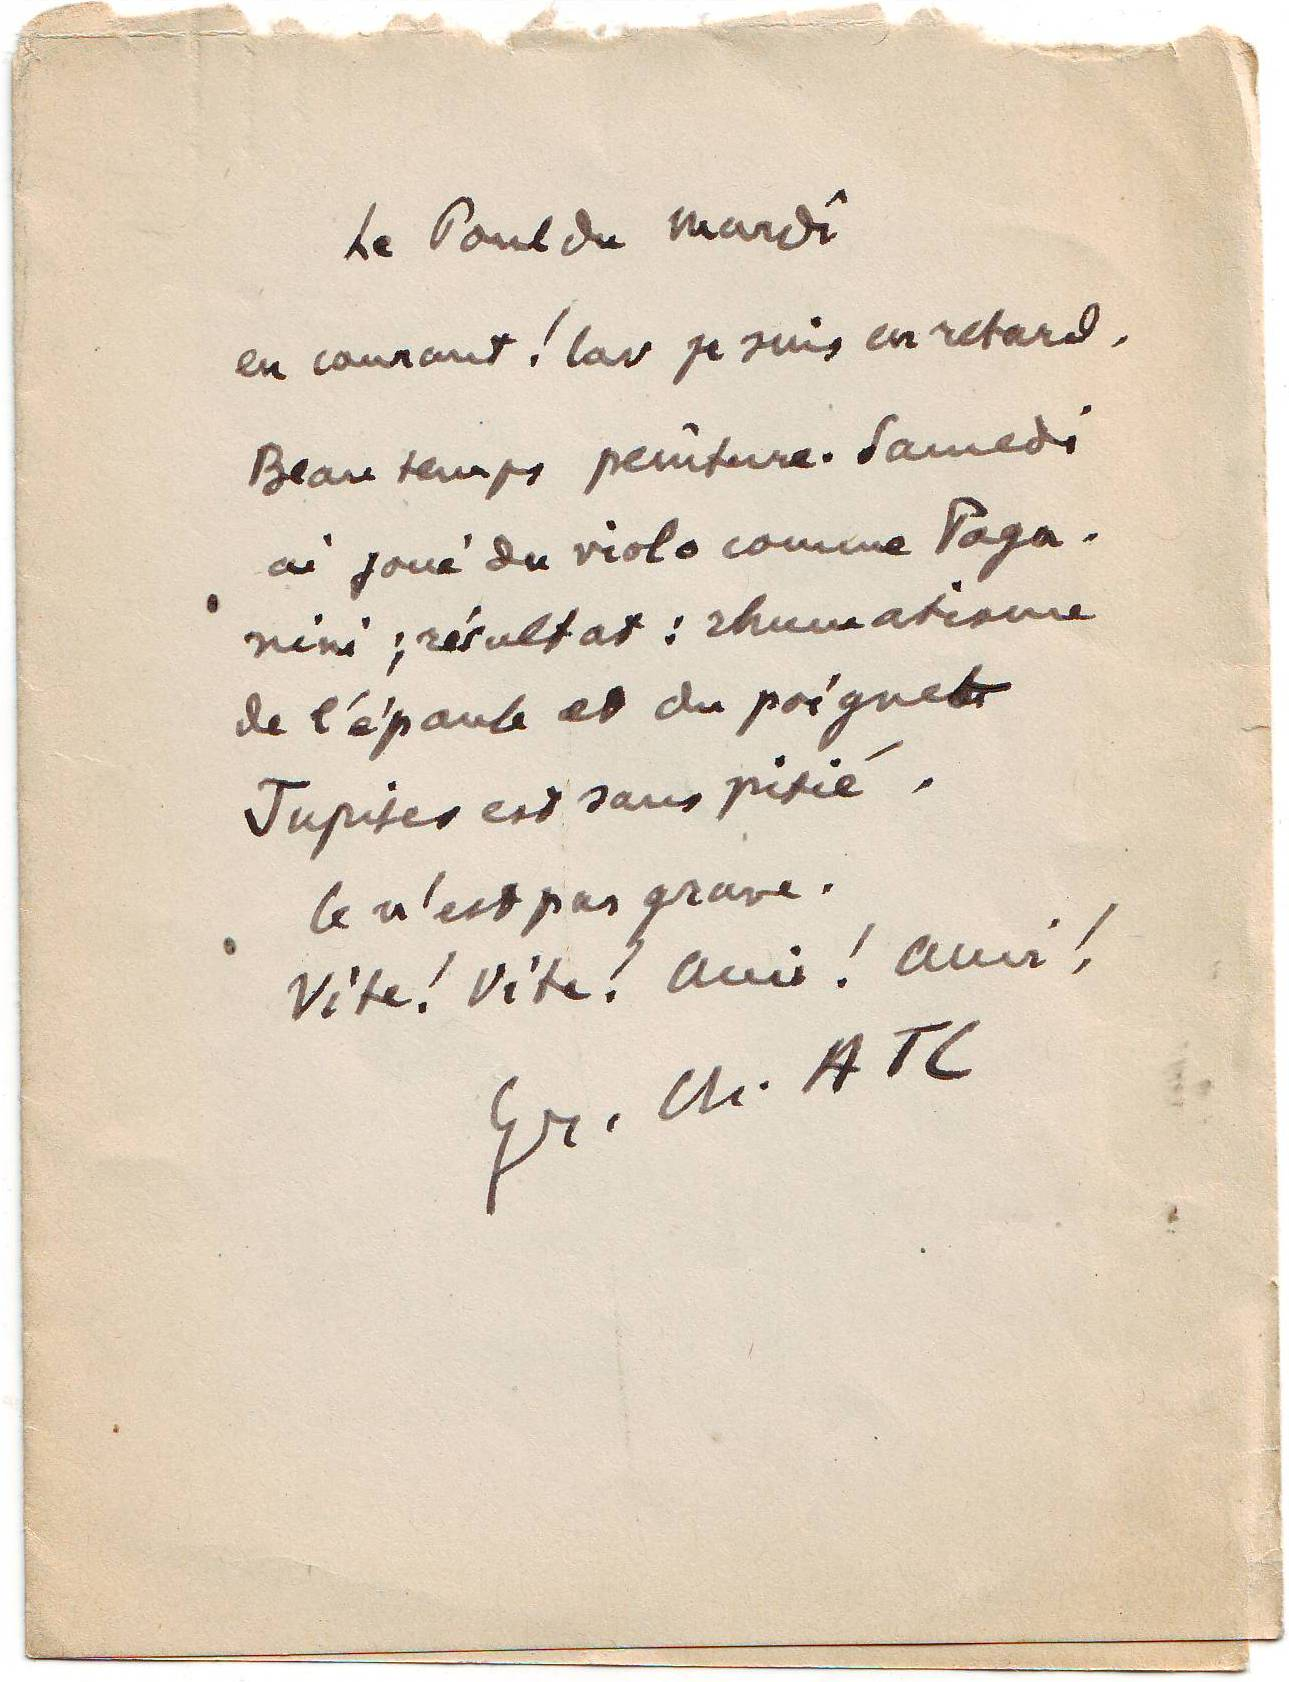 Le Pouldu mardi
en courant ! Car je suis en retard.
Beau temps peinture. Samedi
ai joué du violo comme Paga-
nini ; résultat : rhumatisme
de l'épaule et du poignet
Jupiter est sans pitié.
Ce n'est pas grave.
Vite ! Vite ! Amie ! Ami !
Gr. Ch. ATC